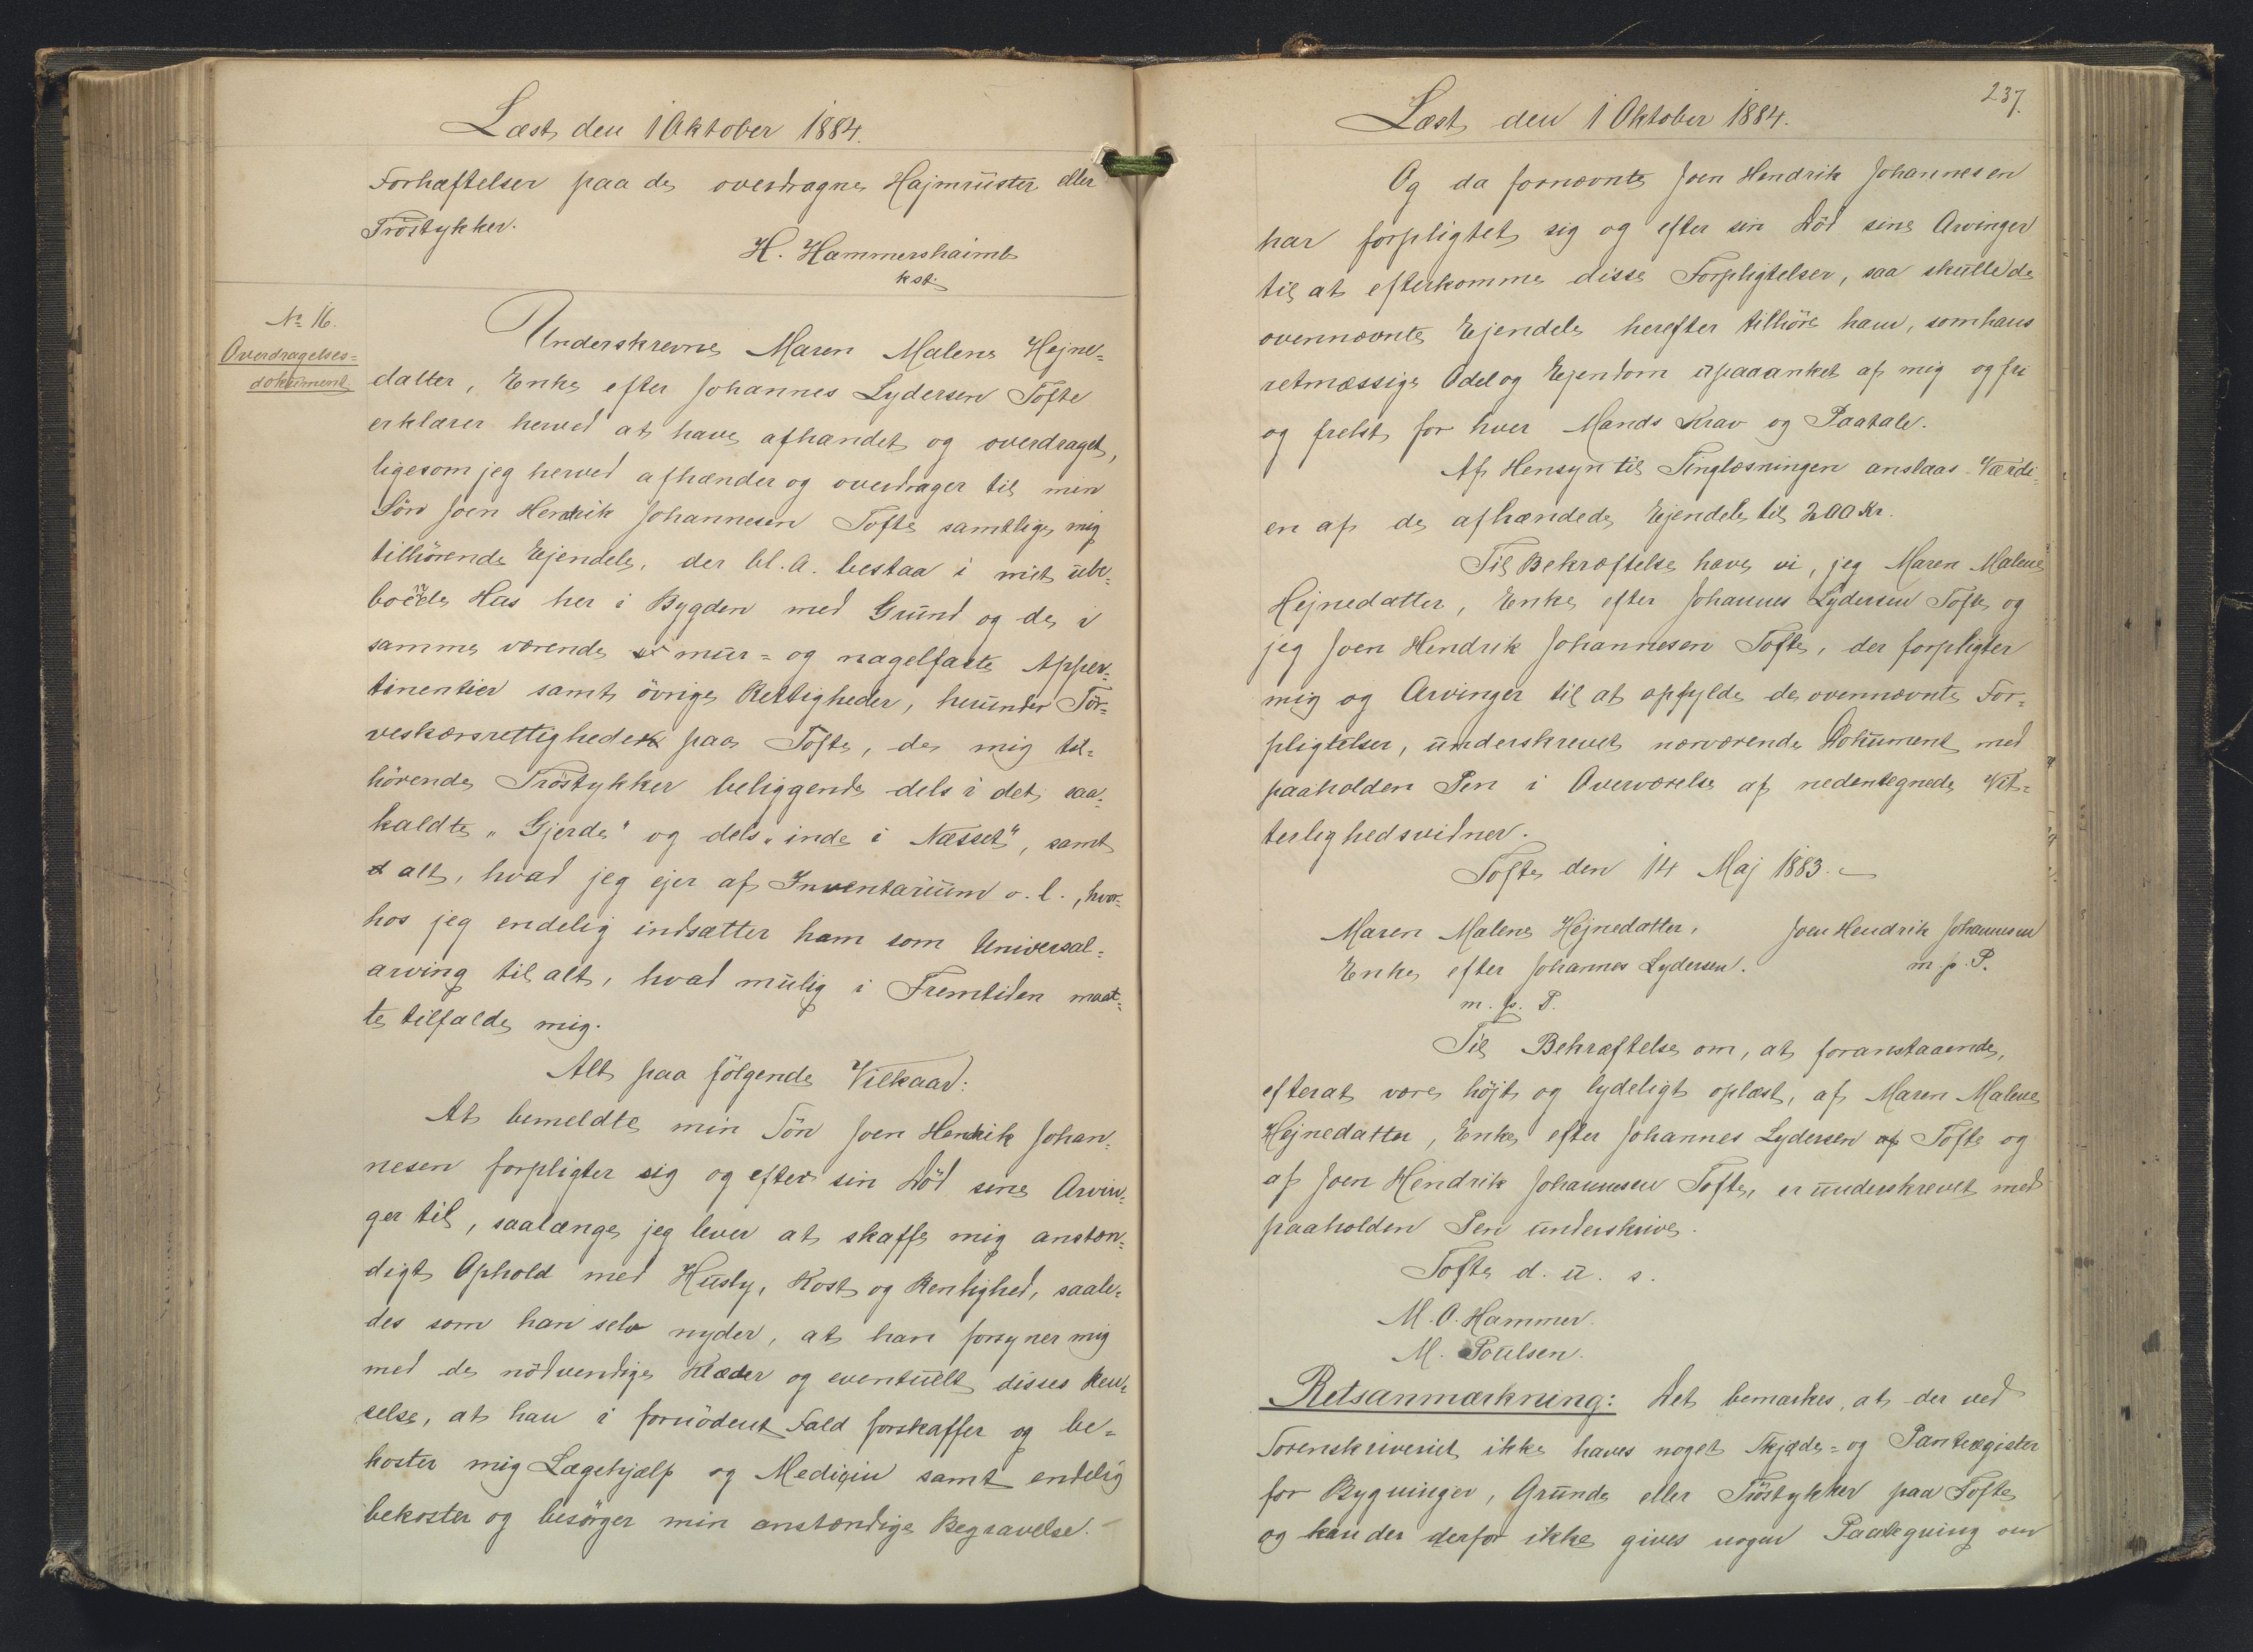 Læst den 1 Oktober 1884.
Forhæftelser paa de overdragne Hajmrüster eller
Tröstykker.
H. Hammershaimb
kst.
№ 16.
Overdragelses=
dokument
Underskrevne Maren Malene Hejne=
datter, Enke efter Johannes Lydersen Tofte
erklærer herved at have afhændet og overdraget,
ligesom jeg herved afhænder og overdrager til min
Sön Joen Hendrik Johannesen Tofte samtlige mig
tilhörende Ejendele, der bl. a. bestaa i mit ube=
boede Hus her i Bygden med Grund og de i
samme værende mur= og nagelfaste Apper=
tinentier samt övrige Rettigheder, herunder Tör=
veskærsrettigheder paa Tofte, de mig til=
hörende Tröstykker beliggende dels i det saa=
kaldte „Gjerde“ og dels „inde i Næsset“, samt
alt, hvad jeg ejer af Inventarium o. l., hvor=
hos jeg endelig indsætter ham som Universal=
arving til alt, hvad mulig i Fremtiden maat=
te tilfalde mig.
Alt paa fölgende Vilkaar:
At bemeldte min Sön Joen Hendrik Johan=
nesen forpligter sig og efter sin Död sine Arvin=
ger til, saalænge jeg lever at skaffe mig anstæn=
digt Ophold med Husly, Kost og Renlighed, saale=
des som han selv nyder, at han forsyner mig
med de nödvendige Klæder og eventuelt disses Ren=
selse, at han i fornödent Fald forskaffer og be=
koster mig Lægehjælp og Medicin samt endelig
bekoster og besörger min anstændige Begravelse.
237.
Læst den 1 Oktober 1884.
Og da fornævnte Joen Hendrik Johannesen
har forpligtet sig og efter sin Död sine Arvinger
til at efterkomme disse Forpligtelser, saa skulle de
ovennævnte Ejendele herefter tilhöre ham, som hans
retmæssige Odel og Ejendom upaaanket af mig og fri
og frelst for hver Mands Krav og Paatale.
Af Hensyn til Tinglæsningen anslaas Værdi=
en af de afhændede Ejendele til 200 Kr.
Til Bekræftelse have vi, jeg Maren Malene
Hejnedatter, Enke efter Johannes Lydersen Tofte og
jeg Joen Hendrik Johannesen Tofte, der forpligter
mig og Arvinger til at opfylde de ovennævnte For=
pligtelser, underskrevet nærværende Dokument med
paaholden Pen i Overværelse af nedentegnede Vit=
terlighedsvidner.
Tofte den 14 Maj 1883.
Maren Malene Hejnedatter, Joen Hendrik Johannesen
Enke efter Johannes Lydersen. m. p. P.
m. p. P.
Til Bekræftelse om, at foranstaaende,
efterat være höjt og lydeligt oplæst, af Maren Malene
Hejnedatter, Enke efter Johannes Lydersen af Tofte og
af Joen Hendrik Johannesen Tofte, er underskrevet med
paaholden Pen underskrive.
Tofte d. u. s.
M. O. Hammer.
M. Poulsen.
Retsanmærkning: Det bemærkes, at der ved
Sorenskriveriet ikke haves noget Skjøde= og Panteregister
for Bygninger, Grunde eller Tröstykker paa Tofte
og kan der derfor ikke gives nogen Paategning om